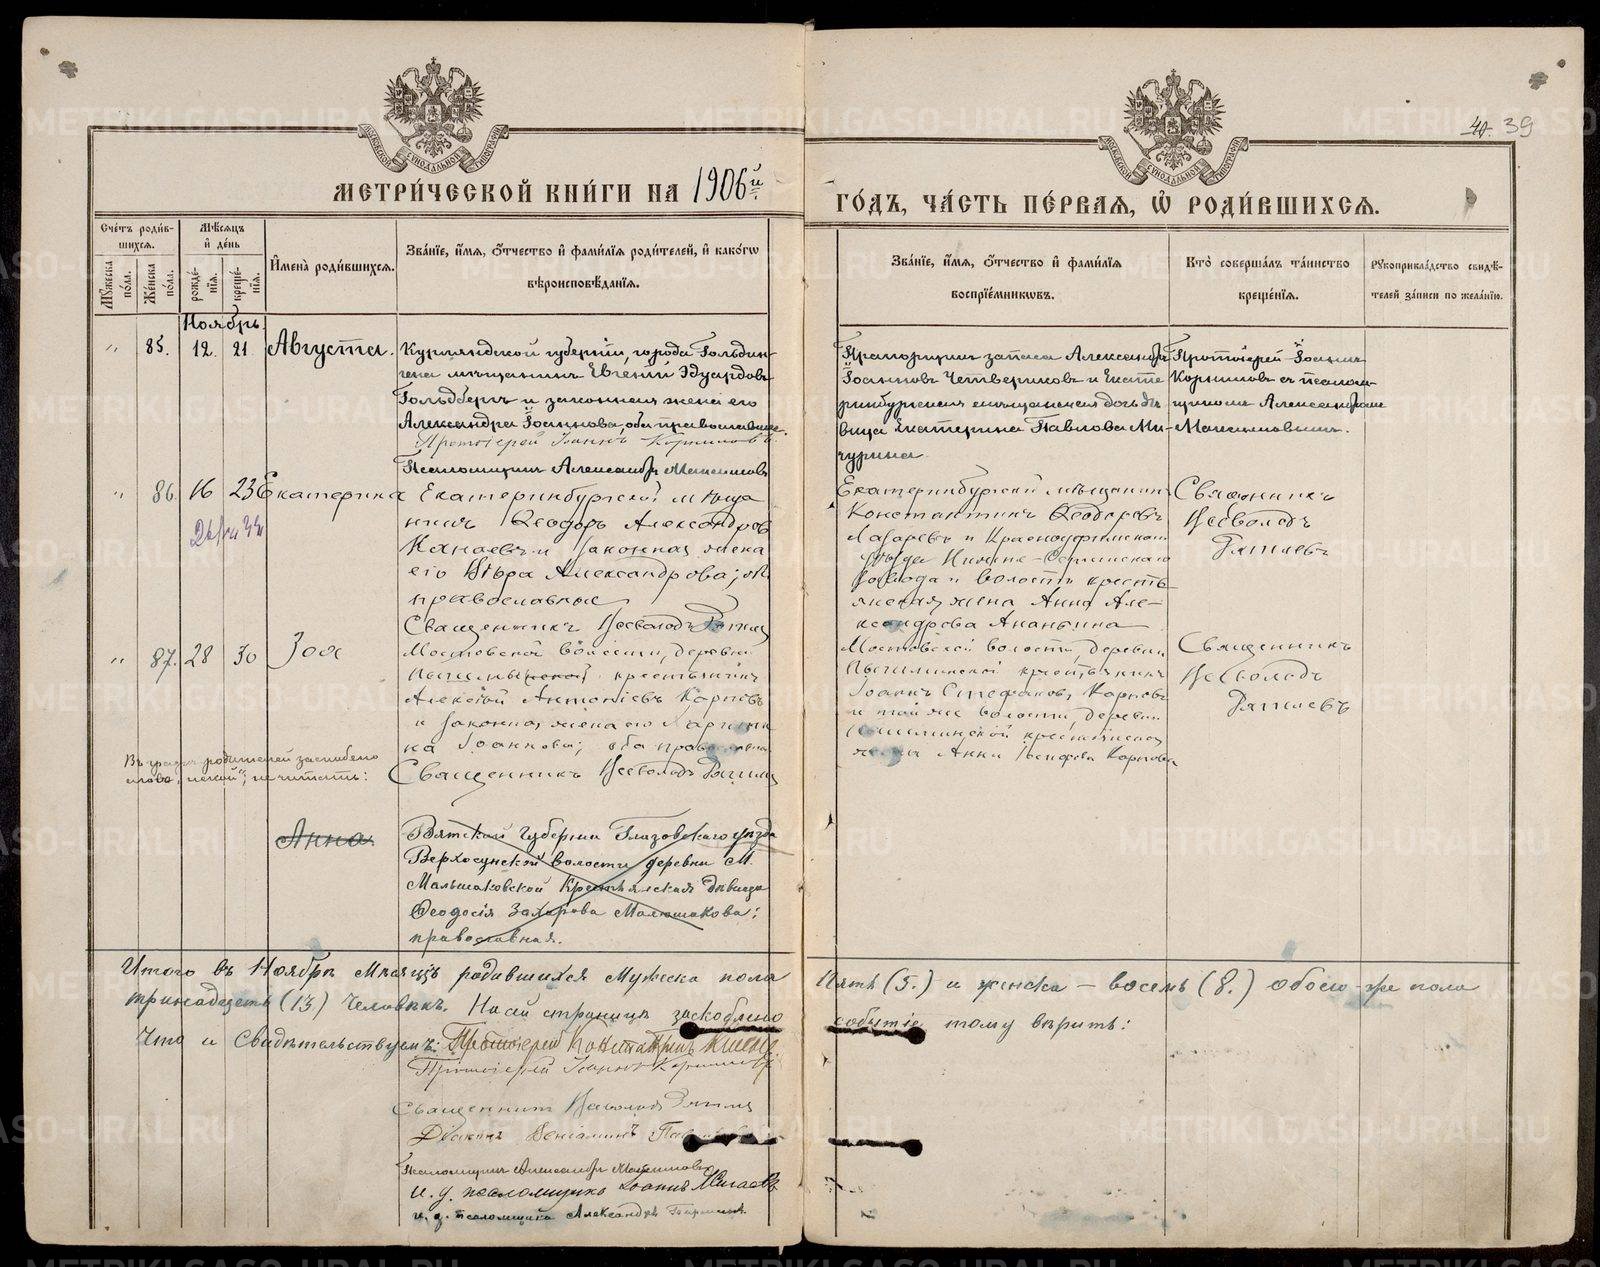 МЕТРИ́ЧЕСКОЙ КНИ́ГИ НА 1906й
ГО́ДЪ, ЧА́СТЬ ПЕ́РВАЯ, Ѡ҆ РОДИ́ВШИХСЯ.
39
МОСКОВСКОЙ СУНОДАЛЬНОЙ ТИПОГРАФІИ
МОСКОВСКОЙ СУНОДАЛЬНОЙ ТИПОГРАФІИ
Сче́тъ роди́в-
шихся.
Мꙋ́жеска по́ла.
Же́нска по́ла.
Мѣ́сяцъ
и҆ де́нь
рожде́-
нїя.
креще́-
нїя.
И҆мена̀ роди́вшихся.
Зва́нїе, и҆́мя, ѻ҆́тчество и҆ фами́лїя роди́телей, и҆ како́гѡ
вѣроисповѣ́данїя.
Зва́нїе, и҆́мя, ѻ҆́тчество и҆ фами́лїя
воспрїе́мникѡвъ.
Кто̀ соверша́лъ та́инство
креще́нїя.
Рꙋкоприкла́дство свидѣ́-
телей за́писи по жела́нїю.
Ноябрь.
" 85. 12. 21. Августа.
Курляндской губерніи, города Гольдин-
гена мѣщанинъ Евгеній Эдуардовъ
Гольдбергъ и законная жена его
Александра Іоаннова, оба православные.
Протоіерей Іоаннъ Корниловъ
Псаломщикъ Александръ Максимовъ
Прапорщикъ запаса Александръ
Іоанновъ Четвериковъ и Екате
ринбургская мѣщанская дочь дѣ
вица Екатерина Павлова Ми-
чурина
Протоіерей Іоаннъ
Корниловъ съ псалом-
щикомъ Александромъ
Максимовымъ.
" 86. 16 23 Екатерина
Екатеринбургскій мѣща
нинъ Ѳеодоръ Александровъ
Канаевъ и законная жена
его Вѣра Александрова; об.
православные
Священникъ Всеволодъ
Екатеринбургскій мѣщанинъ
Константинъ Ѳеодоровъ
Лазаревъ и Красноуфимскаго
уѣзда Нижне-Сергинскаго
завода и волости кресть-
янская жена Анна Але-
ксандрова Ананьина
Священникъ
Всеволодъ
" 87. 28 30 Зоя
Мостовской волости, деревни
крестьянинъ
Алексій Антоніевъ Карповъ
и законная жена его
Іоаннова; оба православные
Священникъ Всеволодъ
Мостовской волости, деревни
крестьянинъ
Іоаннъ Стефановъ Карповъ
и той же волости, деревни
крестьянская
жена Анна Карпова
Священникъ
Всеволодъ
Въ графѣ родителей зачеркнуто
слово не читать:
Анна
Вятской губерніи Глазовскаго уѣзда
Верхосунской волости деревни М.
Малышаковской Крестьянская дѣвица
Ѳеодосія Захарова Малышакова;
православная.
Итого въ Ноябрѣ Мѣсяцѣ родившихся Мужеска пола
Пять (5.) и женска — восемь (8.) обоего же пола
тринадцать (13.) Человѣкъ. На сей страницѣ заскоблено
событіе, тому вѣрить:
Что и Свидѣтельствуемъ: Протоіерей Константинъ
Протоіерей Іоаннъ Корниловъ
Священникъ Всеволодъ
Діаконъ Веніаминъ
Псаломщикъ Александръ Максимовъ
и. д. псаломщика Іоаннъ
и. д. псаломщика Александръ
METRIKI.GASO-URAL.RU